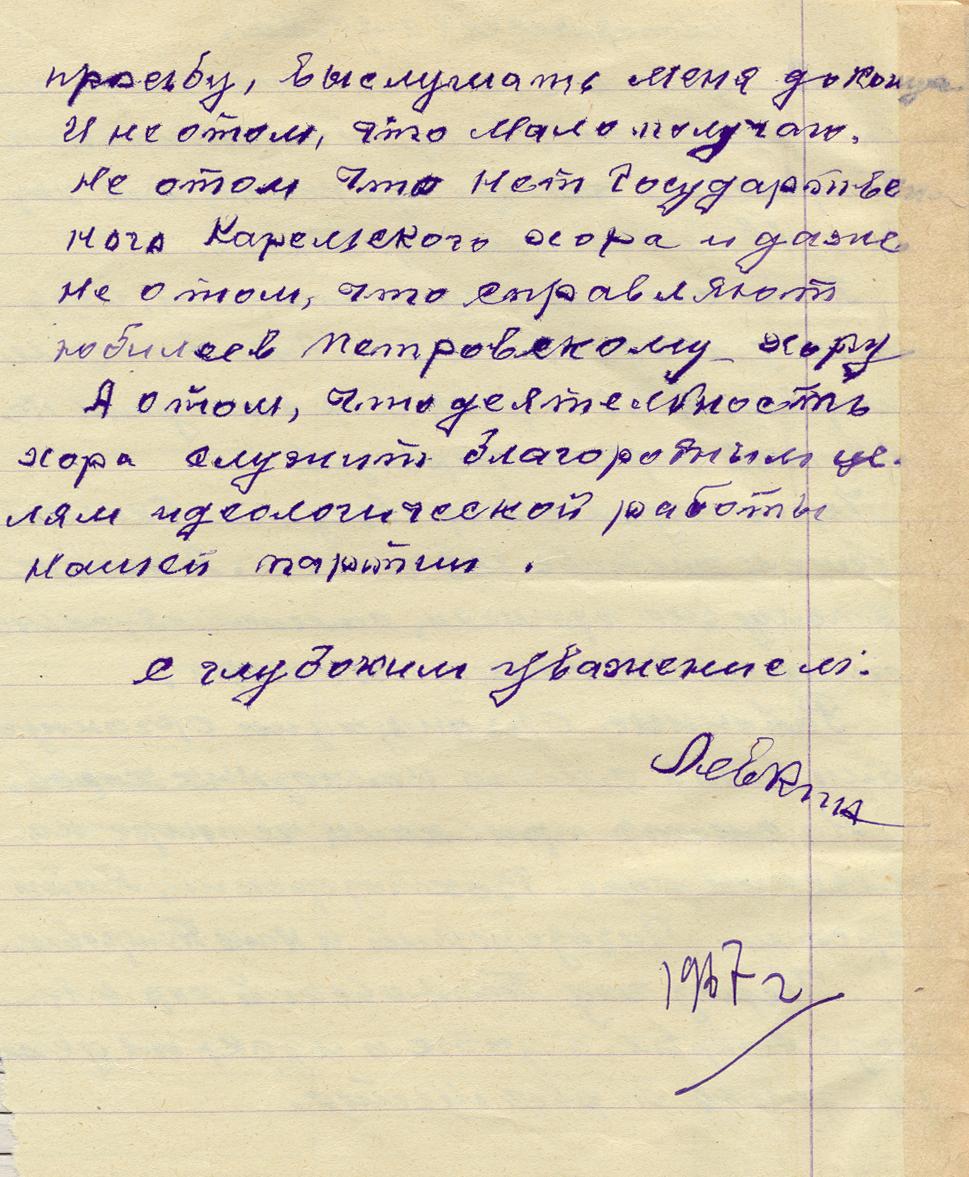 просьбу, выслушать меня до конца.
И не о том, что мало получаю.
Не о том что нет Государстве
ного Карельского хора и даже
не о том, что справляют
юбилеев Петровскому хору
А о том, что деятельность
хора служит благородным це-
лям идеологической работы
нашей партии.
С глубоким уважением:
Левкин
1967 г